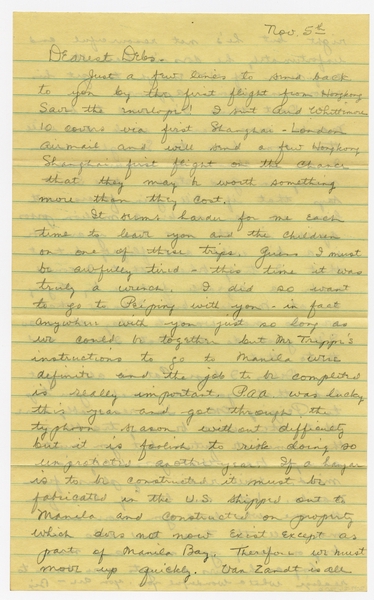 Nov. 5th.
Dearest Debs -
Just a few lines to send back
to you by the first flight from Hongkong
Save the envelope! I sent Aud Whitmore
10 covers via first Shanghai - London
airmail and will send a few Hongkong
Shanghai first flight on the chance
that they may be worth something
more than they cost.
It seems harder for me each
time to leave you and the children
on one of these trips. Guess I must
be awfully tired - this time it was
truly a wrench. I did so want
to go to Peiping with you - in fact
anywhere with you just so long as
we could be together but Mr Trippe's
instructions to go to Manila were
definite and the job to be completed
is really important. PAA was lucky
this year and got through the
typhoon season without difficulty
but it is foolish to risk doing so
unprotected another year. If a hangar
is to be constructed it must be
fabricated in the U.S. shipped out to
Manila and constructed on property
which does not now exist except as
part of Manila Bay. Therefore we must
move up quickly. Van Zandt is all